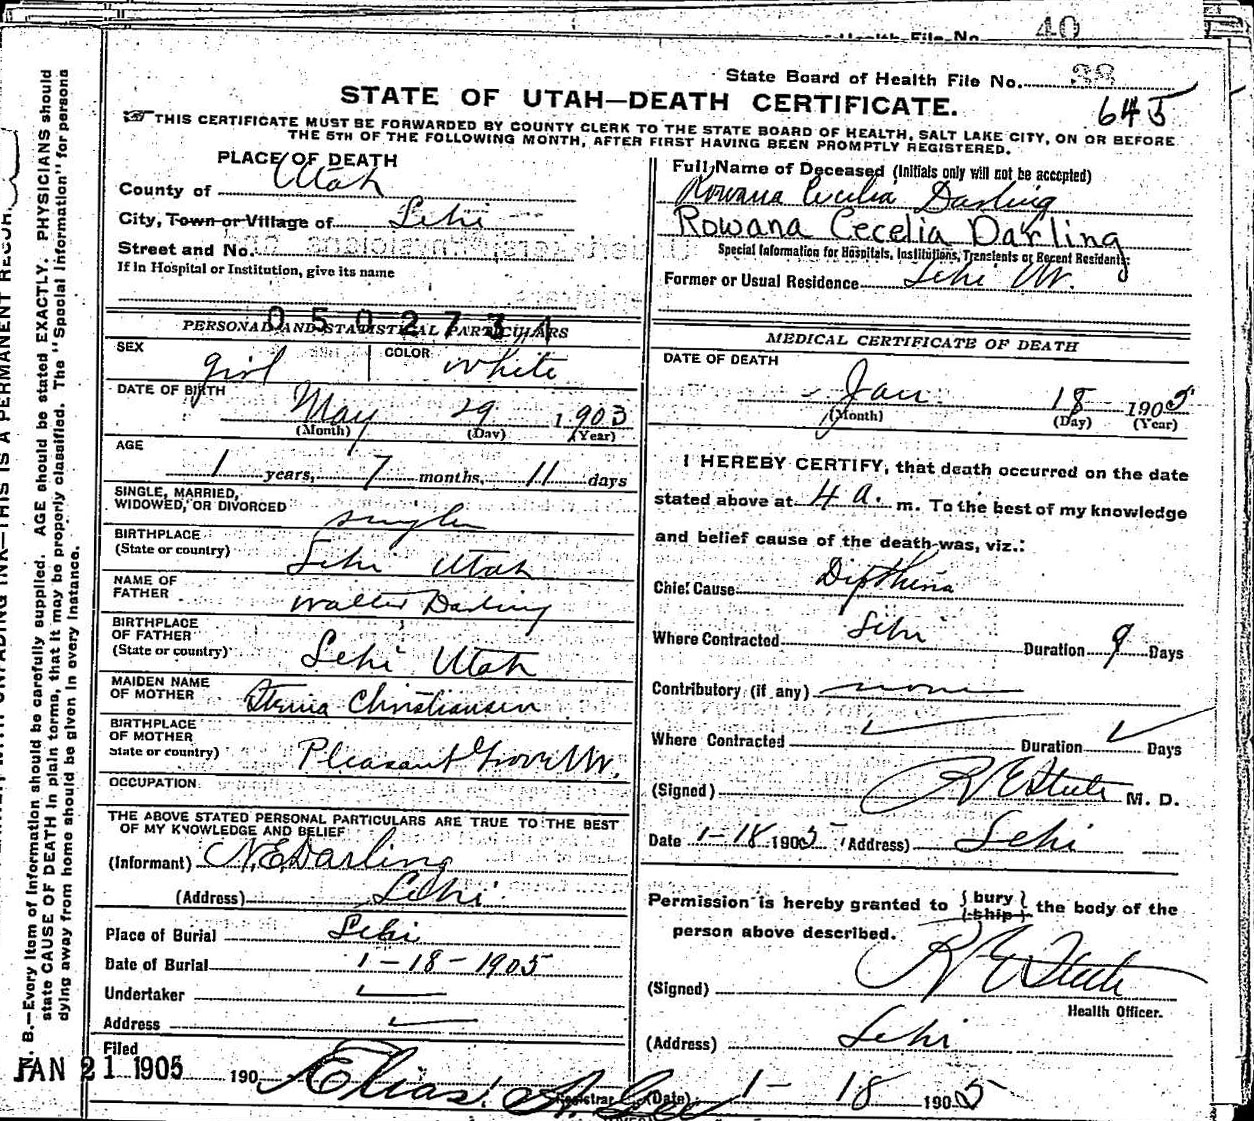 40
Health File No.
State Board of Health File No. 38
645
STATE OF UTAH—DEATH CERTIFICATE.
THIS CERTIFICATE MUST BE FORWARDED BY COUNTY CLERK TO THE STATE BOARD OF HEALTH, SALT LAKE CITY, ON OR BEFORE
THE 5TH OF THE FOLLOWING MONTH, AFTER FIRST HAVING BEEN PROMPTLY REGISTERED.
PLACE OF DEATH
County of Utah
City, Town or Village of Lehi
Street and No.
If in Hospital or Institution, give its name
Full Name of Deceased (Initials only will not be accepted)
Rowana Cecilia Darling
Rowana Cecelia Darling
Special Information for Hospitals, Institutions, Transients or Recent Residents:
Former or Usual Residence Lehi Ut.
0502734
PERSONAL AND STATISTICAL PARTICULARS
SEX girl COLOR white
DATE OF BIRTH
May 29 1903
(Month) (Day) (Year)
AGE
1 years, 7 months, 11 days
SINGLE, MARRIED,
WIDOWED, OR DIVORCED single
BIRTHPLACE
(State or country) Lehi Utah
NAME OF
FATHER Walter Darling
BIRTHPLACE
OF FATHER
(State or country) Lehi Utah
MAIDEN NAME
OF MOTHER Christiansen
BIRTHPLACE
OF MOTHER
State or country) Pleasant Grove Ut.
OCCUPATION
THE ABOVE STATED PERSONAL PARTICULARS ARE TRUE TO THE BEST
OF MY KNOWLEDGE AND BELIEF
(Informant) N.E. Darling
(Address) Lehi
Place of Burial Lehi
Date of Burial 1-18-1905
Undertaker
Address
Filed
JAN 21 1905 190
Elias A. Gee
Registrar
MEDICAL CERTIFICATE OF DEATH
DATE OF DEATH
Jan 18 1905
(Month) (Day) (Year)
I HEREBY CERTIFY, that death occurred on the date
stated above at 4 a. m. To the best of my knowledge
and belief cause of the death was, viz.:
Chief Cause Diptheria
Where Contracted Lehi Duration 9 Days
Contributory (if any) none
Where Contracted Duration Days
(Signed) R E Steele M. D.
Date 1-18 1905 (Address) Lehi
Permission is hereby granted to { bury } the body of the
{ ship }
person above described.
(Signed) R E Steele
Health Officer.
(Address) Lehi
(Date) 1-18 1905
B.—Every item of information should be carefully supplied. AGE should be stated EXACTLY. PHYSICIANS should
state CAUSE OF DEATH in plain terms, that it may be properly classified. The "Special Information" for persons
dying away from home should be given in every instance.